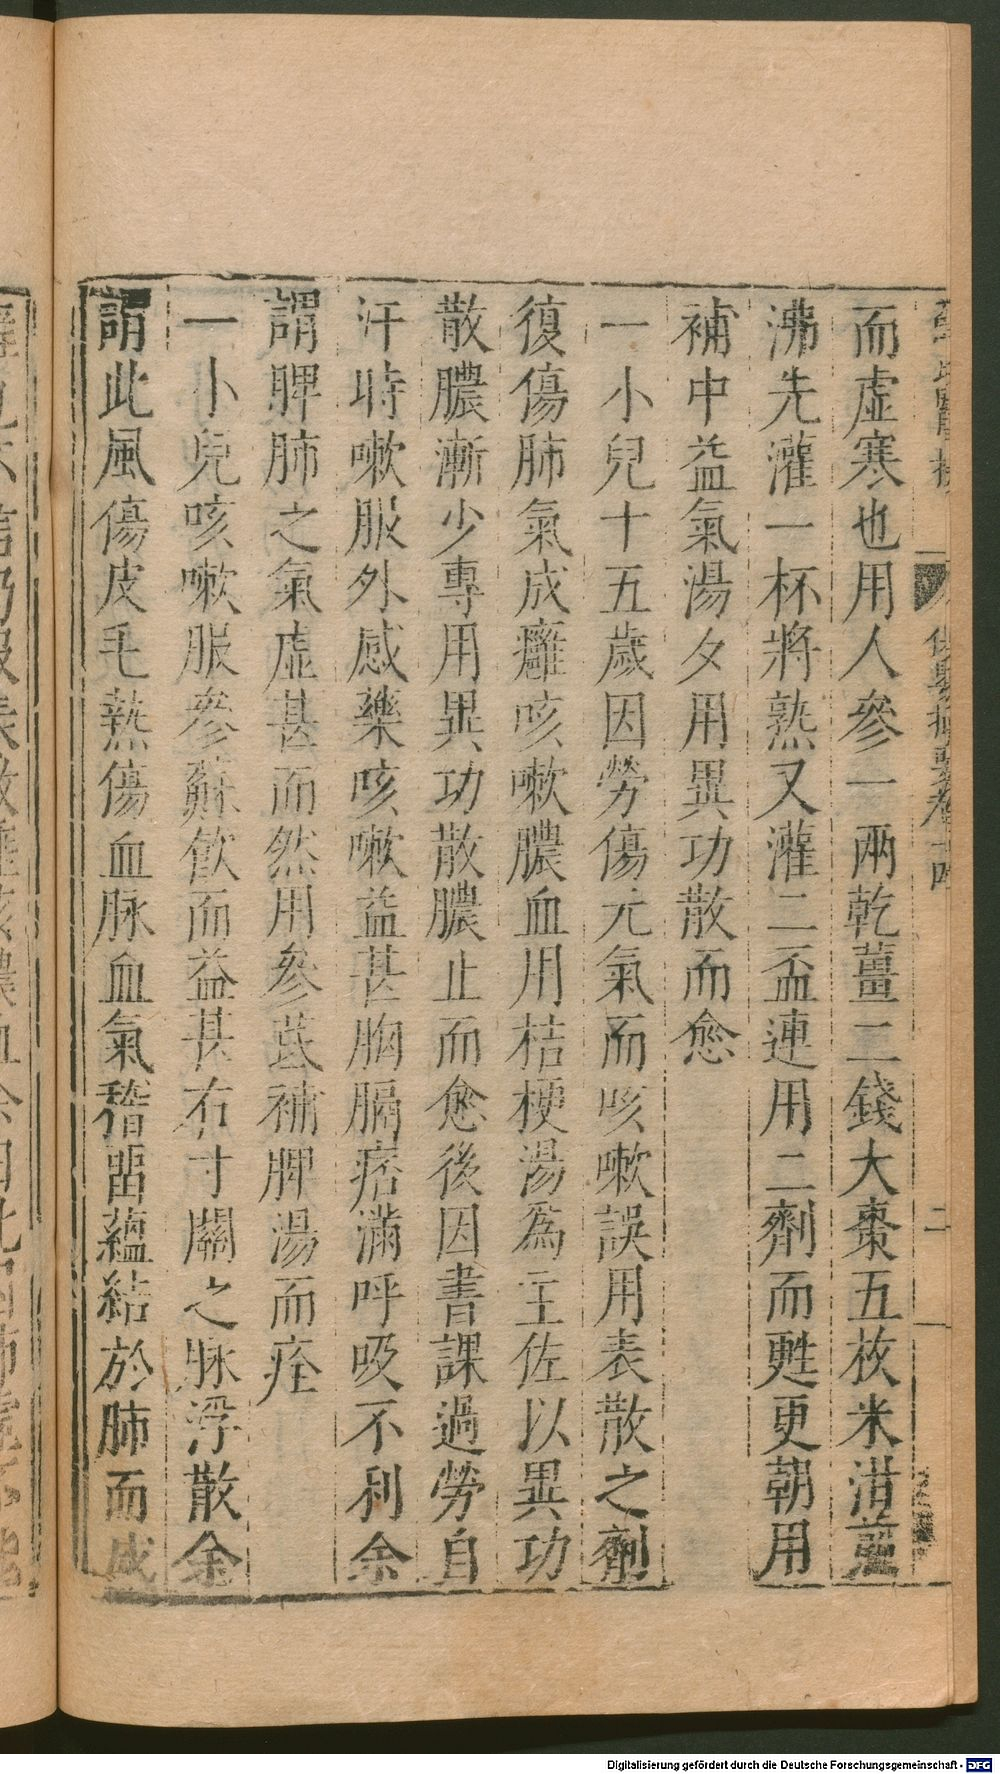 保嬰撮要卷十四
二
而虛寒也用人參一兩乾薑二錢大棗五枚米泔煎
沸先灌一杯將熟又灌二盃連用二劑而甦更朝用
補中益氣湯夕用異功散而愈
一小兒十五歲因勞傷元氣而咳嗽誤用表散之劑
復傷肺氣成癰咳嗽膿血用桔梗湯爲主佐以異功
散膿漸少專用異功散膿止而愈後因書課過勞自
汗時嗽服外感藥咳嗽益甚胸膈痞滿呼吸不利余
謂脾肺之氣虛甚而然用參芪補脾湯而痊
一小兒咳嗽服參蘇飲而益甚右寸關之脉浮散余
謂此風傷皮毛熱傷血脉血氣稽畱蘊結於肺而成
Digitalisierung gefördert durch die Deutsche Forschungsgemeinschaft - DFG